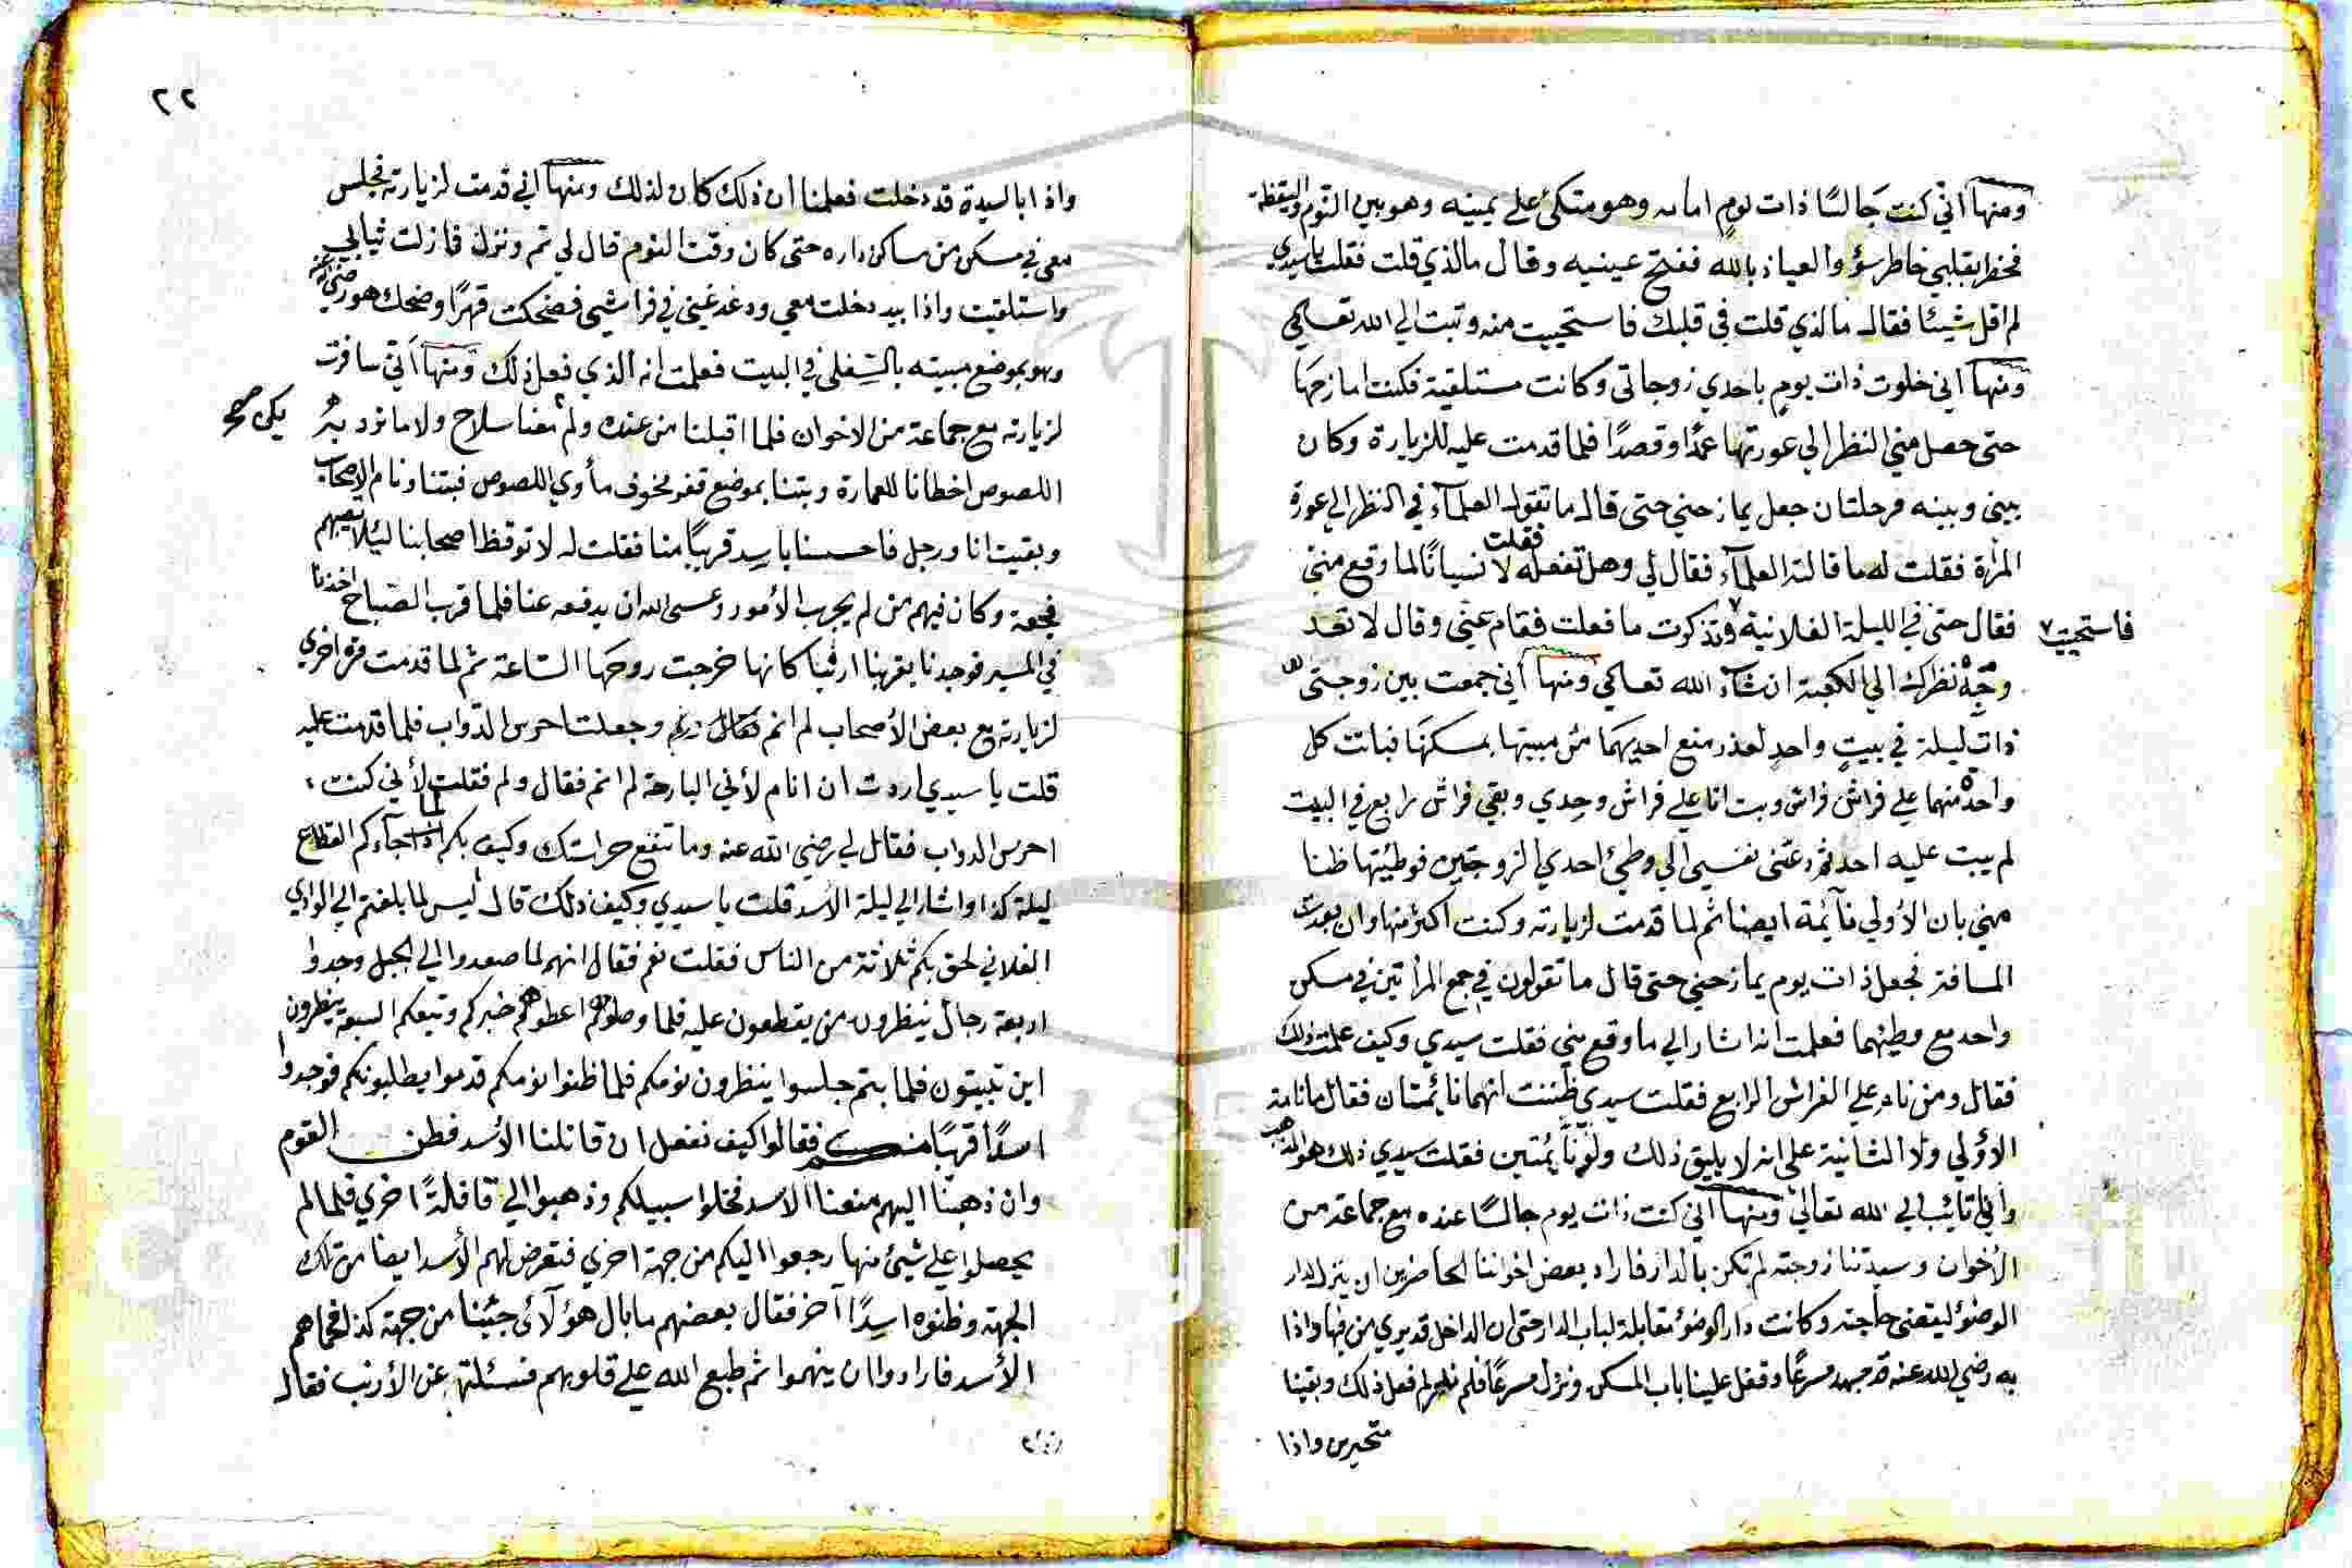 ومنها اني كنت جالسًا ذات يومٍ امامه وهو متكئ على يمينه وهو بين النوم واليقظة
فخطر بقلبي خاطر سؤ والعياذ بالله ففتح عينيه وقال مالذي قلت فقلت يا سيدي
لم اقل شيئا فقال مالذي قلت في قلبك فاستحييت منه وتبت الي الله تعالى
ومنها اني خلوت ذات يومٍ باحدي زوجاتي وكانت مستلقية فكنت امازحها
حتى حصل مني النظر الي عورتها عمدًا وقصدًا فلما قدمت عليه للزيارة وكان
بيني وبينه مرحلتان جعل يمازحني حتى قال ما تقول العلمآء في النظر الي عورة
المرأة فقلت له ما قالته العلمآء فقال لي وهل تفعله فقلت لا نسيانًا لما وقع مني
فقال حتى في الليلة الفلانية وتذكرت ما فعلت فقام عني وقال لا تعد
فاستحييت
وجّه نظرك الي الكعبة ان شآء الله تعالى ومنها اني جمعت بين زوجتيّ
ذات ليلة في بيتٍ واحدٍ لعذر منع احديهما من مبيتها بمسكنها فباتت كل
واحدة منهما علي فراش فراش وبت انا علي فراش وحدي وبقي فراش رابع في البيت
لم يبت عليه احد فدعتني نفسي الي وطئ احدي الزوجتين فوطئتها ظنا
مني بان الأولي نآئمة ايضا ثم لما قدمت لزيارته وكنت اكثر منها وان بعدت
المسافة فجعل ذات يوم يمازحني حتى قال ما تقولون في جمع المرأتين في مسكن
واحد مع وطئهما فعلمت انه اشار الي ما وقع مني فقلت سيدي وكيف علمت ذلك
فقال ومن نام علي الفراش الرابع فقلت سيدي ظننت انهما نائمتان فقال ما نامة
الأولي ولا الثانية على انه لا يليق ذلك ولو نآئمتين فقلت سيدي ذلك هو المذهب
واني تائب الي الله تعالى ومنها اني كنت ذات يوم جالسًا عنده مع جماعة من
الأخوان وسيدتنا زوجته لم تكن بالدار فاراد بعض اخواننا الحاضرين ان ينزل لدار
الوضؤ ليقضي حاجته وكانت دار الوضؤ مقابلة لباب الدار حتى ان الداخل قد يري من فيها واذا
به رضي الله عنه مسرعًا وقفل علينا باب المسكن ونزل مسرعًا فلم نعلم لم فعل ذلك وبقينا
متحيرين واذا
٢٢
واذا بالسيدة قد دخلت فعلمنا ان ذلك كان لذلك ومنها اني قدمت لزيارته فجلس
معي في مسكن من مساكن داره حتى كان وقت النوم قال لي نم ونزل فازلت ثيابي
واستلقيت واذا بيد دخلت معي ودغدغني في فراشي فضحكت قهرًا وضحك هو رضي الله عنه
وهو بموضع مبيته بالسفلي في البيت فعلمت انه الذي فعل ذلك ومنها اني سافرت
لزيارته مع جماعة من الاخوان فلما اقبلنا من عنده ولم معنا سلاح ولا ما نرد به
يكن صح
اللصوص اخطانا للعمارة وبتنا بموضع قفر مخوف مأوي اللصوص فبتنا ونام الاصحاب
وبقيت انا ورجل فاحسسنا باسد قريبًا منا فقلت له لا توقظ اصحابنا ليئلا تصيبهم
فجعة وكان فيهم من لم يجرب الأمور وعسى الله ان يدفعه عنا فلما قرب الصباح اخذنا
في المسير فوجدنا بقربنا ارنبا كانها خرجت روحها الساعة ثم لما قدمت مرة اخري
لزيارته مع بعض الأصحاب لم انم وجعلت احرس الدواب فلما قدمت عليه
قلت يا سيدي اردت ان انام لأني البارحة لم انم فقال ولم فقلت لأني كنت
احرس الدواب فقال لي رضي الله عنه وما تنفع حراستك وكيف بكم لما جآءكم القطاع
ليلة كذا واشار الي ليلة الأسد قلت يا سيدي وكيف ذلك قال اليس لما بلغتم الي الوادي
الفلاني لحق بكم ثلاثة من الناس فقلت نعم فقال انهم لما صعدوا الي الجبل وجدوا
اربعة رجال ينظرون من يقطعون عليه فلما وصلوهم اعطوهم خبركم وتبعكم السبعة ينظرون
اين تبيتون فلما بتم جلسوا ينظرون نومكم فلما ظنوا نومكم قدموا يطلبونكم فوجدوا
اسدًا قريبًا منكم فقالوا كيف نفعل ان قاتلنا الأسد فطن القوم
وان ذهبنا اليهم منعنا الاسد فخلوا سبيلكم وذهبوا الي قافلةً اخري فلما لم
يحصلوا علي شيئ منها رجعوا اليكم من جهة اخري فتعرض لهم الأسد ايضا من تلك
الجهة وظنوه اسدًا آخر فقال بعضهم ما بال هؤلآئ جئنا من جهة كذا فحماهم
الأسد فارادوا ان ينهموا ثم طبع الله علي قلوبهم فسئلته عن الأرنب فقال